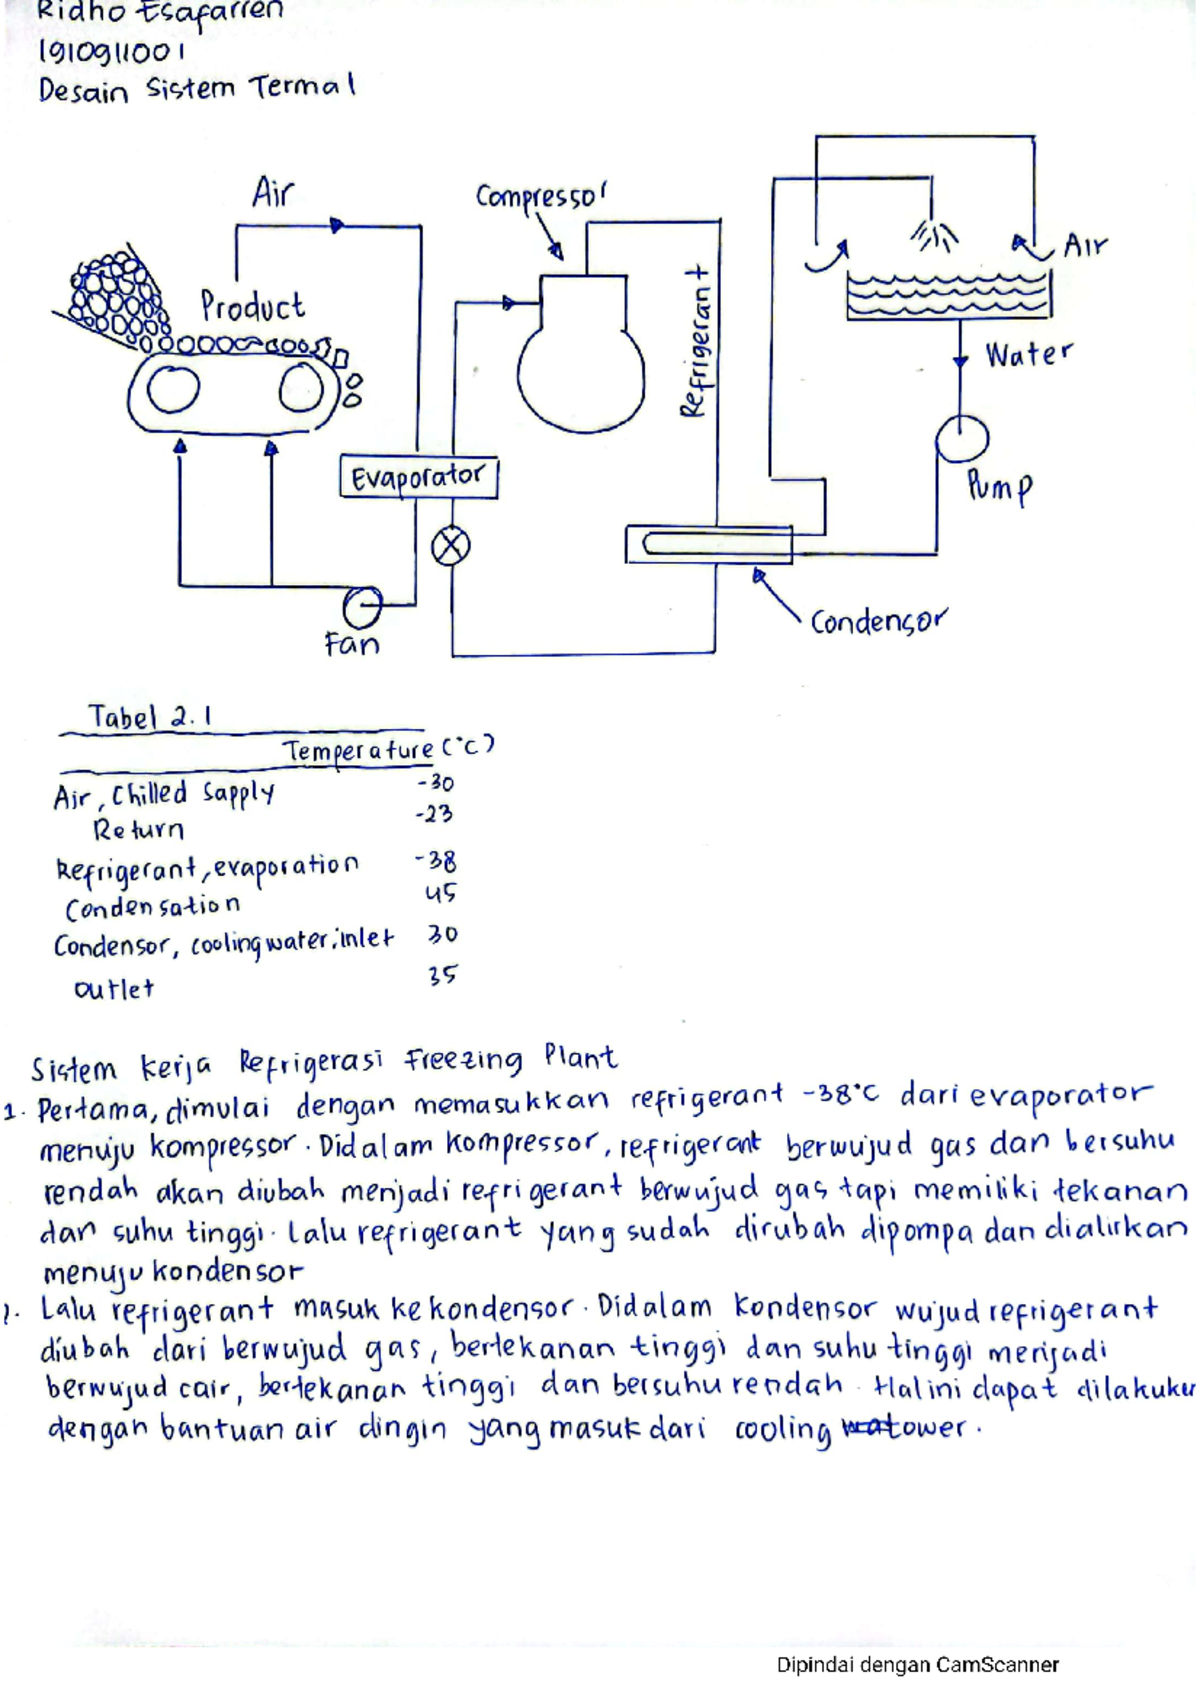 Ridho Esafarren
1910911001
Desain Sistem Termal
Air
Compressor
Air
Product
Refrigerant
Water
Evaporator
Pump
Condensor
Fan
Tabel 2.1
Temperature (°C)
Air, Chilled Sapply -30
Return -23
Refrigerant, evaporation -38
Condensation 45
Condensor, cooling water; inlet 30
outlet 35
Sistem kerja Refrigerasi Freezing Plant
1. Pertama, dimulai dengan memasukkan refrigerant -38°C dari evaporator
menuju kompressor. Didalam kompressor, refrigerant berwujud gas dan bersuhu
rendah akan diubah menjadi refrigerant berwujud gas tapi memiliki tekanan
dan suhu tinggi. Lalu refrigerant yang sudah dirubah dipompa dan dialirkan
menuju kondensor
2. Lalu refrigerant masuk ke kondensor. Didalam kondensor wujud refrigerant
diubah dari berwujud gas, bertekanan tinggi dan suhu tinggi menjadi
berwujud cair, bertekanan tinggi dan bersuhu rendah. Hal ini dapat dilakukan
dengan bantuan air dingin yang masuk dari cooling tower.
Dipindai dengan CamScanner